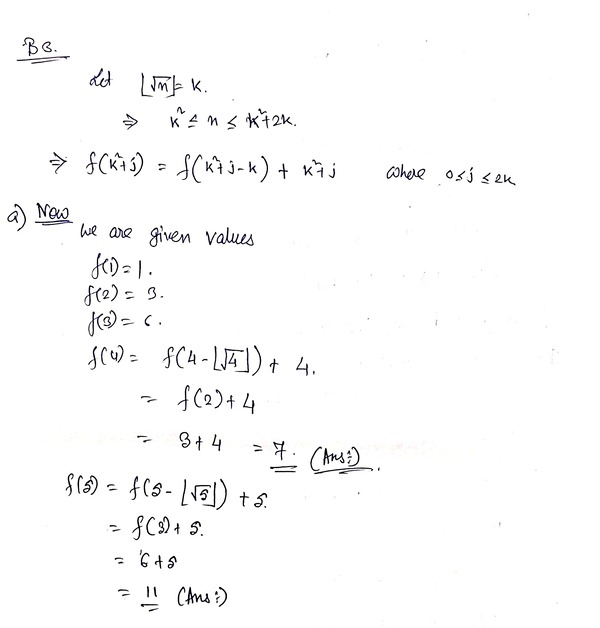 B3.
Let ⌊√n⌋ = k.
⇒ k² ≤ n ≤ k²+2k.
⇒ f(k²+j) = f(k²+j-k) + k²+j where 0≤j≤2k
a) Now
we are given values
f(1)=1.
f(2) = 3.
f(3) = 6.
f(4) = f(4-⌊√4⌋) + 4.
= f(2)+4
= 3+4 = 7. (Ans:).
f(5) = f(5-⌊√5⌋) + 5.
= f(3)+5.
= 6+5
= 11 (Ans:)